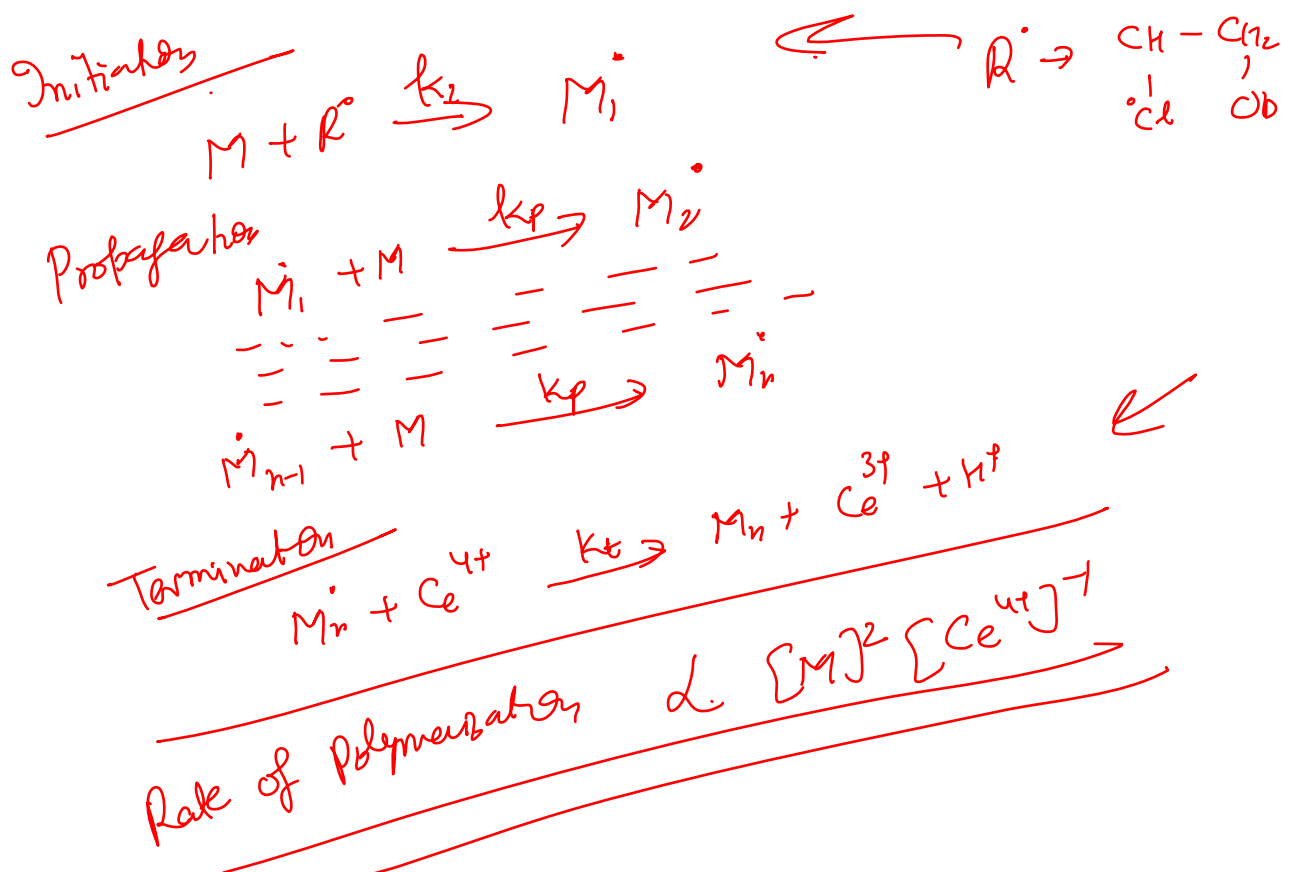 Initiation
M + R• k₂ → M₁•
R• → CH – CH₂
•Cl Ob
Propagation
M₁• + M kp → M₂•
M•ₙ₋₁ + M kp → Mₙ•
Termination
Mₙ• + Ce⁴⁺ kt → Mₙ + Ce³⁺ + H⁺
Rate of Polymerization α [M]² [Ce⁴⁺]⁻¹